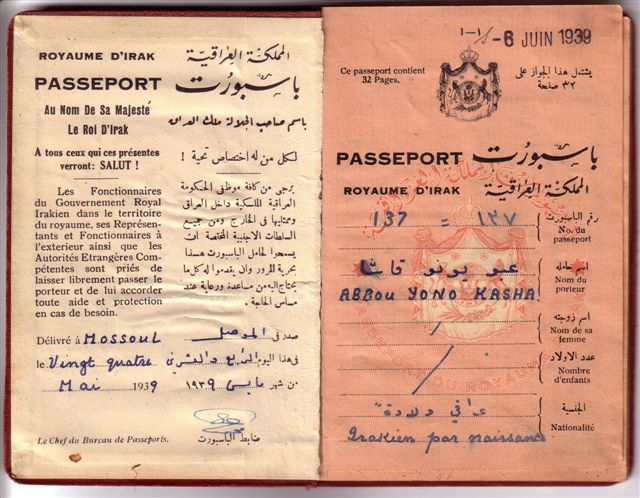 ROYAUME D'IRAK
المملكة العراقية
PASSEPORT
باسبورت
Au Nom De Sa Majesté
Le Roi D'Irak
باسم صاحب الجلالة ملك العراق
À tous ceux qui ces présentes
verront: SALUT !
لكل من له اختصاص تحية !
Les Fonctionnaires
du Gouvernement Royal
Irakien dans le territoire
du royaume, ses Représen-
tants et Fonctionnaires à
l'exterieur ainsi que les
Autorités Etrangères Com-
pétentes sont priés de
laisser librement passer le
porteur et de lui accorder
toute aide et protection
en cas de besoin.
يرجى من كافة موظفي الحكومة
العراقية الملكية داخل العراق
وممثليها في الخارج ومن جميع
السلطات الاجنبية المختصة ان
يسمحوا لحامل الباسبورت هذا
بحرية المرور وان يقدموا له كل ما
يحتاج اليه من مساعدة ورعاية عند
مساس الحاجة.
Délivré à MOSSOUL
صدر في الموصل
le Vingt quatre
في هذا اليوم الرابع والعشرين
Mai 1939
من شهر مايس ١٩٣٩
Le Chef du Bureau de Passeports.
ضابط الباسبورت
-6 JUIN 1939
Ce passeport contient
32 Pages.
يشتمل هذا الجواز على
٣٢ صفحة
PASSEPORT باسبورت
ROYAUME D'IRAK المملكة العراقية
137 = ١٣٧
رقم الباسبورت
No. du
passeport
عبو يونو قاشا
ABBOU YONO KASHA
اسم حامله
Nom du
porteur
اسم زوجته
Nom de sa
femme
عدد الاولاد
Nombre
d'enfants
عراقي ولادة
Irakien par naissance
الجنسية
Nationalité
PASSEPORT DU ROYAUME